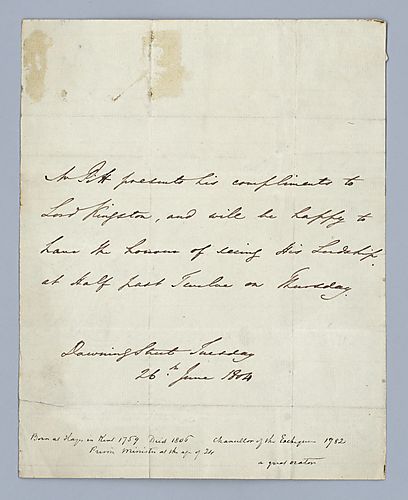 Mr Pitt presents his compliments to
Lord Kingston, and will be happy to
have the honour of seeing His Lordship
at Half past Twelve on Thursday.
Downing Street Tuesday
26th June 1804
Born at Hayes in Kent 1759 Died 1806 Chancellor of the Exchequer 1782
Prime Minister at the age of 24
a great orator